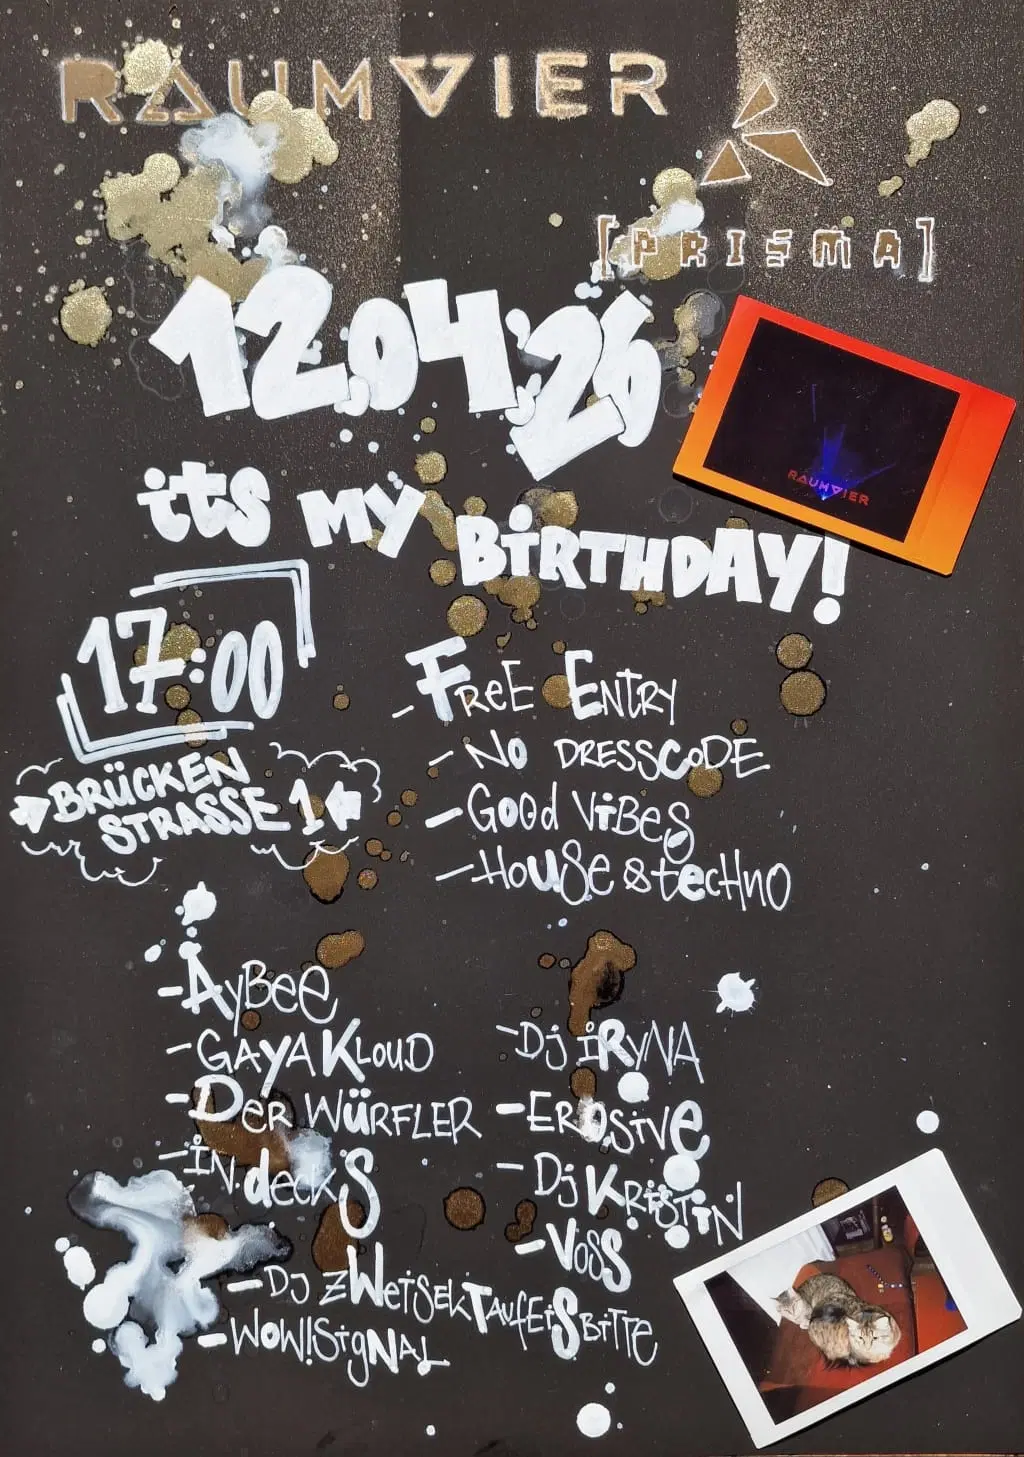 RAUMVIER
[PRISMA]
12.04.26
RAUMVIER
its my BIRTHDAY!
17:00
- FREE ENTRY
- NO DRESSCODE
BRÜCKEN
STRASSE 1
- Good ViBES
- House & techno
- AyBee
- GAYA KLOUD
- DJ iRyNA
- DER WÜRFLER
- EROSiVe
- IN.deckS
- Dj KRiSTiN
- VOSS
- DJ ZWeiSEKTAUFEiSBiTTE
- WOW!SigNAL